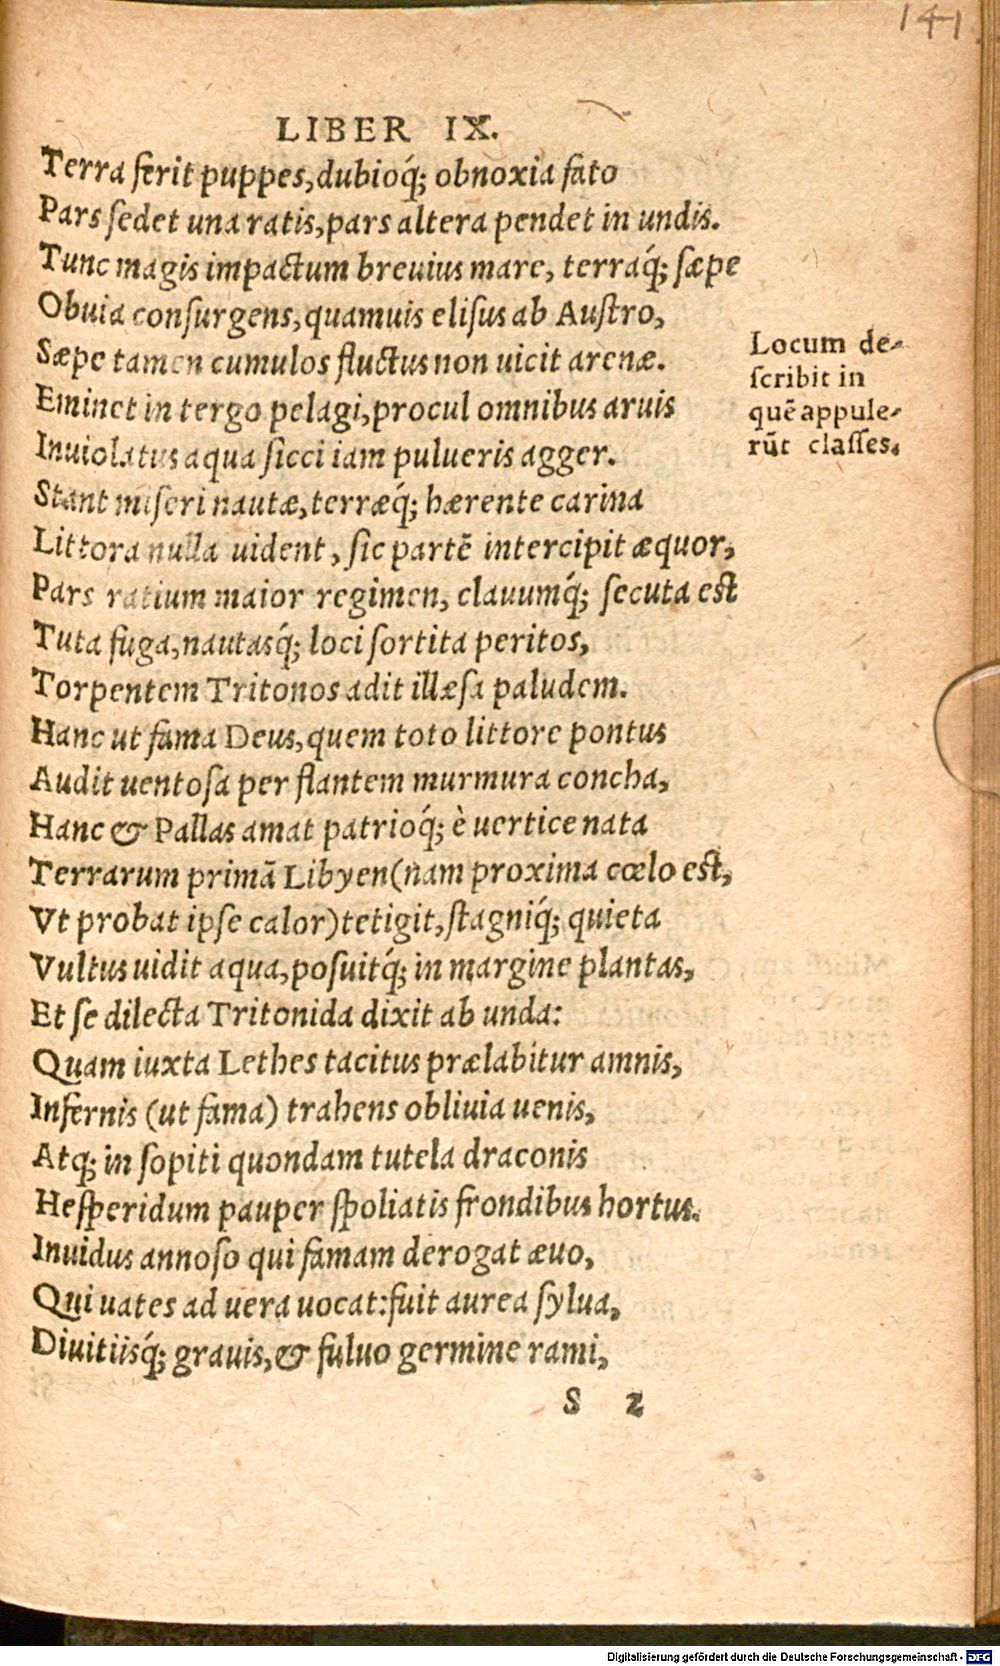 141
LIBER IX.
Terra ferit puppes, dubioq́; obnoxia fato
Pars sedet una ratis, pars altera pendet in undis.
Tunc magis impactum breuius mare, terraq́; sæpe
Obuia consurgens, quamuis elisus ab Austro,
Sæpe tamen cumulos fluctus non uicit arenæ.
Eminet in tergo pelagi, procul omnibus aruis
Inuiolatus aqua sicci iam pulueris agger.
Stant miseri nautæ, terræq́; hærente carina
Littora nulla uident, sic partē intercipit æquor,
Pars ratium maior regimen, clauumq́; secuta est
Tuta fuga, nautasq́; loci sortita peritos,
Torpentem Tritonos adit illæsa paludem.
Hanc ut fama Deus, quem toto littore pontus
Audit uentosa per flantem murmura concha,
Hanc & Pallas amat patrioq́; è uertice nata
Terrarum primā Libyen (nam proxima cœlo est,
Vt probat ipse calor) tetigit, stagniq́; quieta
Vultus uidit aqua, posuitq́; in margine plantas,
Et se dilecta Tritonida dixit ab unda:
Quam iuxta Lethes tacitus prælabitur amnis,
Infernis (ut fama) trahens obliuia uenis,
Atq; in sopiti quondam tutela draconis
Hesperidum pauper spoliatis frondibus hortus.
Inuidus annoso qui famam derogat æuo,
Qui uates ad uera uocat: fuit aurea sylua,
Diuitiisq́; grauis, & fuluo germine rami,
S 2
Locum de-
scribit in
quē appule-
rūt classes.
Digitalisierung gefördert durch die Deutsche Forschungsgemeinschaft - DFG